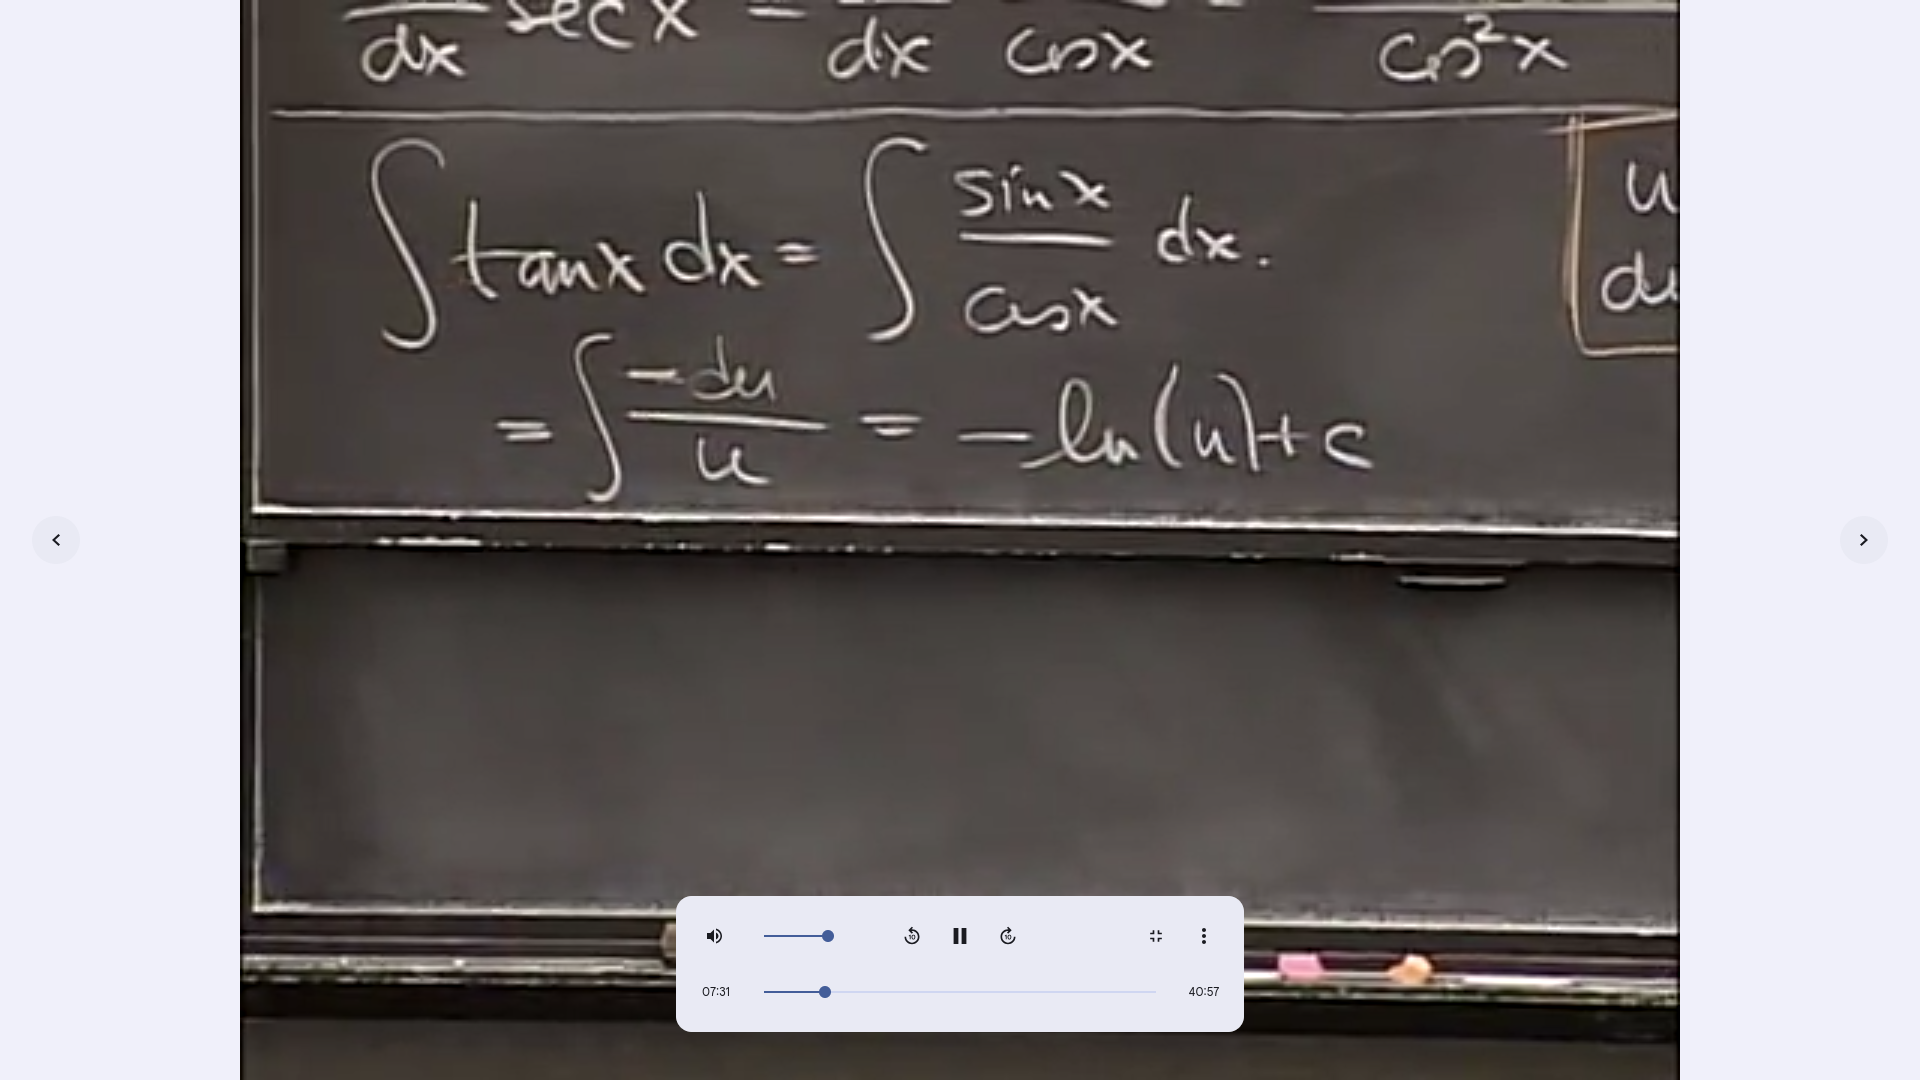 d/dx sec x = d/dx 1/cos x = /cos²x
∫ tan x dx = ∫ sin x/cos x dx.
u
du
= ∫ -du/u = -ln(u) + c
10
10
07:31
40:57